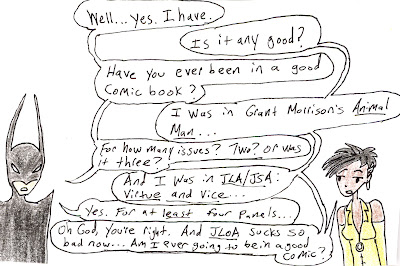 Well...yes. I have.
Is it any good?
Have you ever been in a good
comic book?
I was in Grant Morrison's Animal
Man...
For how many issues? Two? or was
it three?
And I was in JLA/JSA:
Virtue and Vice...
Yes. For at least four panels...
Oh God, you're right. And JLoA sucks so
bad now... Am I ever going to be in a good
comic?